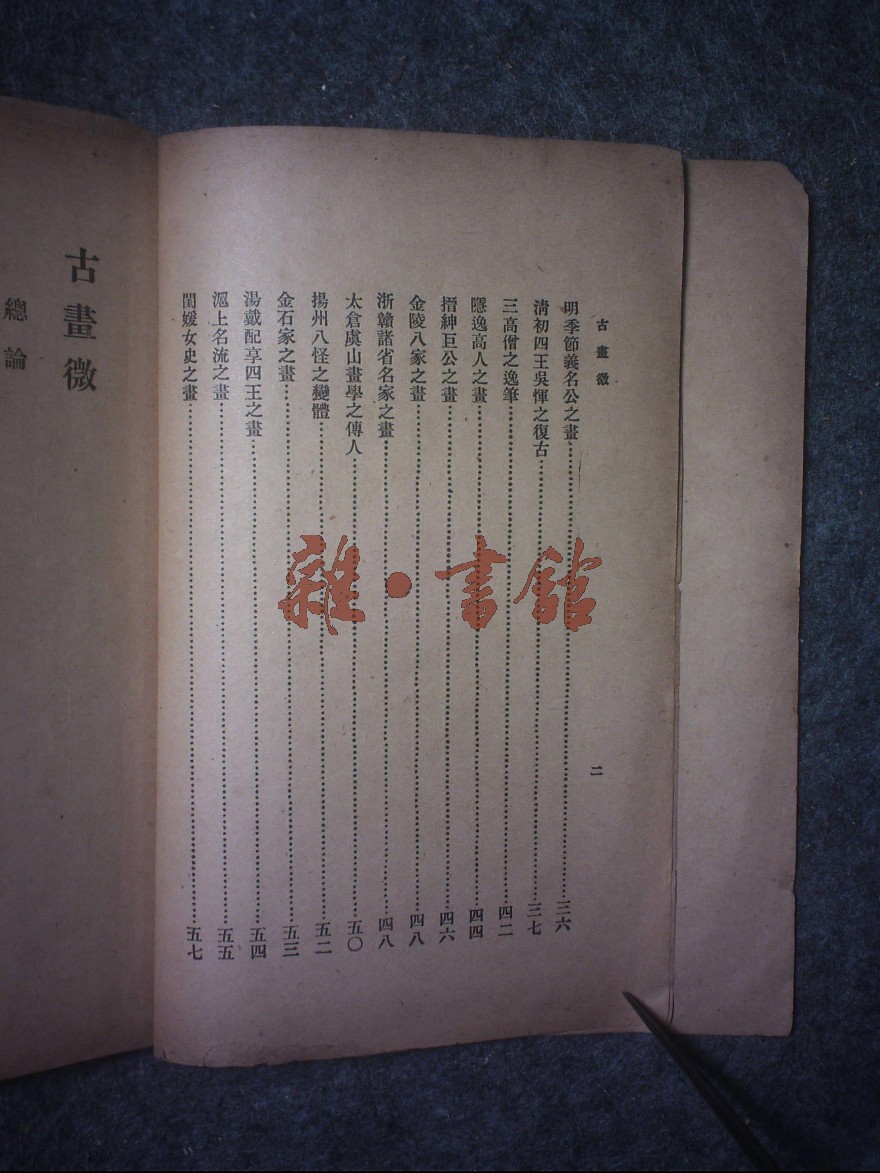 古畫微
明季節義名公之畫……三六
淸初四王吳惲之復古……三七
三高僧之逸筆……四二
隱逸高人之畫……四四
搢紳巨公之畫……四六
金陵八家之畫……四八
浙贛諸省名家之畫……四八
太倉虞山畫學之傳人……五〇
揚州八怪之變體……五二
金石家之畫……五三
湯戴配享四王之畫……五四
滬上名流之畫……五五
閨媛女史之畫……五七
二
古畫微
總論
雜·書館